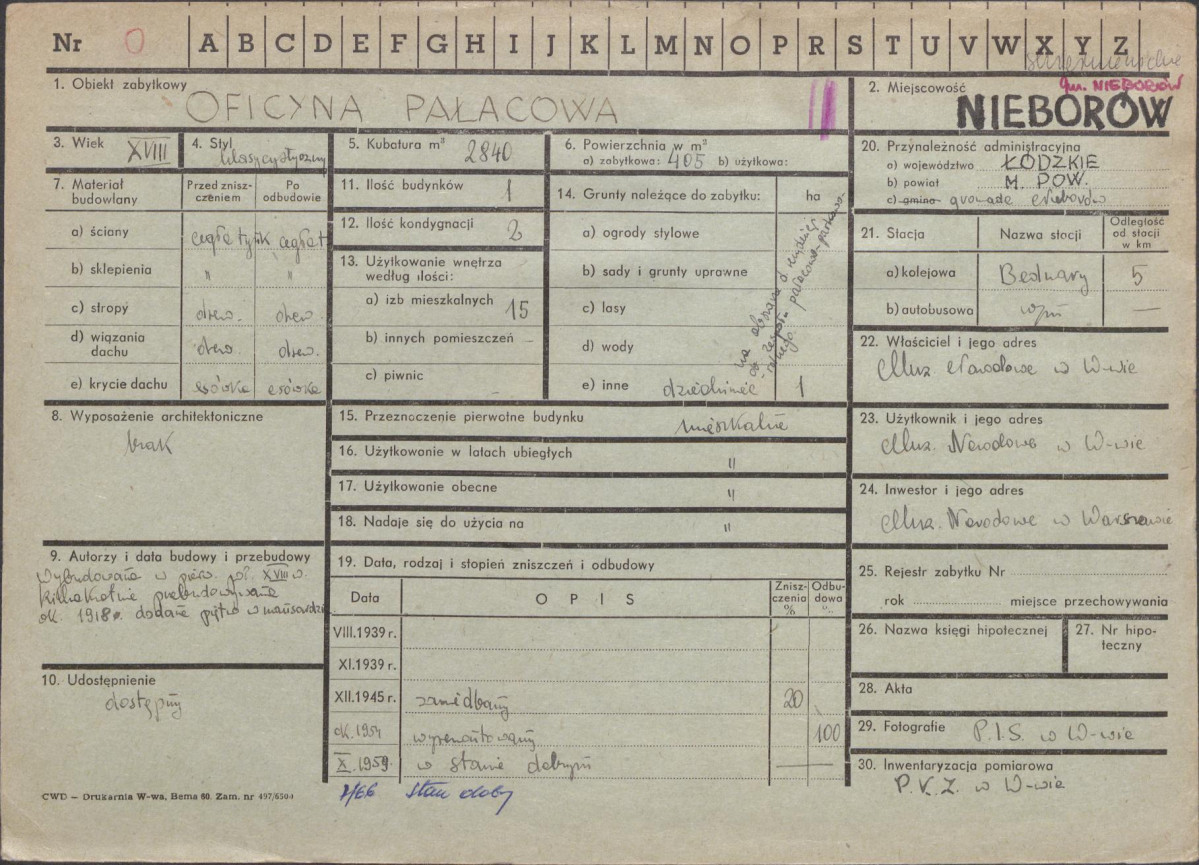 Nr 0 A B C D E F G H I J K L M N O P R S T U V W X Y Z
1. Obiekt zabytkowy
OFICYNA PAŁACOWA
2. Miejscowość
gm. NIEBORÓW
NIEBORÓW
3. Wiek XVIII
4. Styl klasycystyczny
5. Kubatura m³ 2840
6. Powierzchnia w m²
a) zabytkowa: 405 b) użytkowa:
20. Przynależność administracyjna
a) województwo ŁÓDZKIE
b) powiat M. POW.
c) gmina gromada Nieborów
7. Materiał budowlany
Przed zniszczeniem
Po odbudowie
a) ściany cegła tynk cegła t
b) sklepienia " "
c) stropy drew. drew.
d) wiązania dachu drew. drew.
e) krycie dachu esówka esówka
11. Ilość budynków 1
12. Ilość kondygnacji 2
13. Użytkowanie wnętrza
według ilości:
a) izb mieszkalnych 15
b) innych pomieszczeń –
c) piwnic –
14. Grunty należące do zabytku: ha
a) ogrody stylowe
b) sady i grunty uprawne
c) lasy
d) wody
e) inne dziedziniec 1
21. Stacja Nazwa stacji Odległość od. stacji w km
a) kolejowa Bednary 5
b) autobusowa —
22. Właściciel i jego adres
Muz Narodowe w W-wie
8. Wyposażenie architektoniczne
brak
15. Przeznaczenie pierwotne budynku mieszkalne
16. Użytkowanie w latach ubiegłych "
17. Użytkowanie obecne "
18. Nadaje się do użycia na "
23. Użytkownik i jego adres
Muz. Narodowe w W-wie
24. Inwestor i jego adres
Muz. Narodowe w Warszawie
9. Autorzy i data budowy i przebudowy
Wybudowana w pierw. poł. XVIII w.
kilkakrotnie przebudowywana
ok. 1918 r. dodane piętro w mansardzie
19. Data, rodzaj i stopień zniszczeń i odbudowy
Data OPIS Zniszczenia % Odbudowa %
VIII.1939 r.
XI.1939 r.
XII.1945 r. zaniedbany 20
ok. 1954 wyremontowany 100
X.1959. w stanie dobrym —
7/66 stan dobry
25. Rejestr zabytku Nr
rok miejsce przechowywania
26. Nazwa księgi hipotecznej
27. Nr hipoteczny
10. Udostępnienie
dostępny
28. Akta
29. Fotografie P.I.S. w W-wie
30. Inwentaryzacja pomiarowa
P.K.Z. w W-wie
CWD — Drukarnia W-wa, Bema 60. Zam. nr 497/650-I